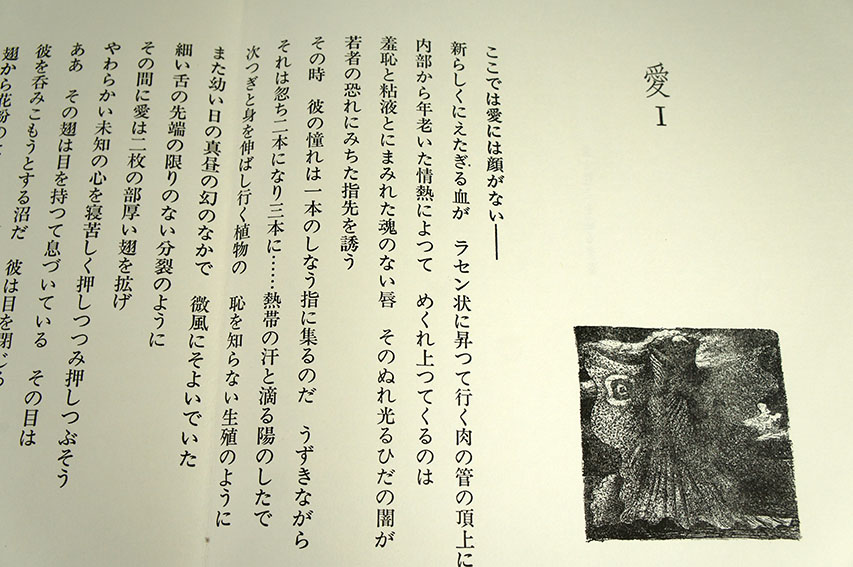 愛
I
ここでは愛には顔がない――
新らしくにえたぎる血が　ラセン状に昇つて行く肉の管の頂上に
内部から年老いた情熱によつて　めくれ上つてくるのは
羞恥と粘液とにまみれた魂のない唇　そのぬれ光るひだの闇が
若者の恐れにみちた指先を誘う
その時　彼の憧れは一本のしなう指に集るのだ　うずきながら
それは忽ち二本になり三本に……熱帯の汗と滴る陽のしたで
次つぎと身を伸ばし行く植物の　恥を知らない生殖のように
また幼い日の真昼の幻のなかで　微風にそよいでいた
細い舌の先端の限りのない分裂のように
その間に愛は二枚の部厚い翅を拡げ
やわらかい未知の心を寝苦しく押しつつみ押しつぶそう
ああ　その翅は目を持つて息づいている　その目は
彼を呑みこもうとする沼だ　彼は目を閉じる
翅から花粉の